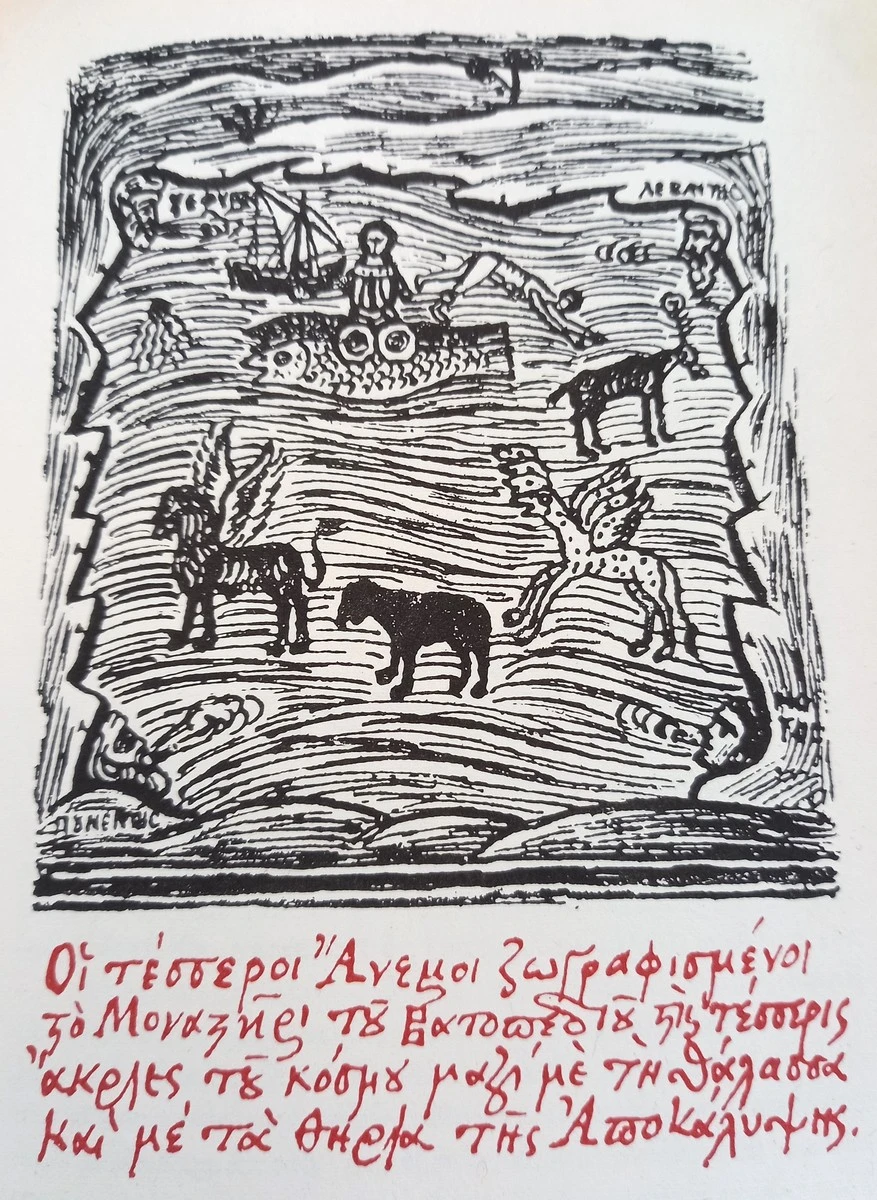 ΛΕΒΑΝΤΗς
ΠΟΝΕΝΤΗς
Οἱ τέσσεροι Ἄνεμοι ζωγραφισμένοι
στὸ Μοναστῆρι τοῦ Βατοπεδίου στὶς τέσσερις
ἄκριες τοῦ κόσμου μαζὶ μὲ τὴ θάλασσα
καὶ μὲ τὰ θηρία τῆς Ἀποκάλυψης.